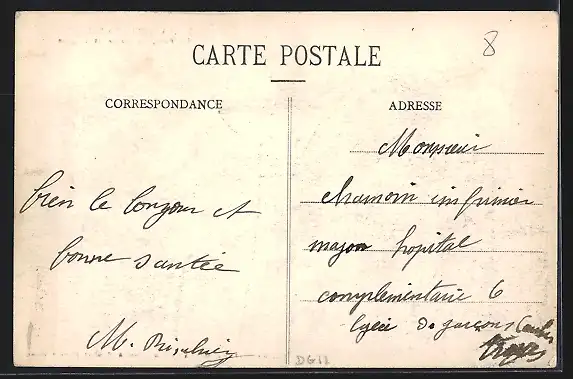 8
CARTE POSTALE
CORRESPONDANCE
ADRESSE
Monsieur
chamoin imprimier
majon hopital
complementaire 6
lycée de garçons
Troyes
bien le bonjour et
bonne santée
M.
DG12